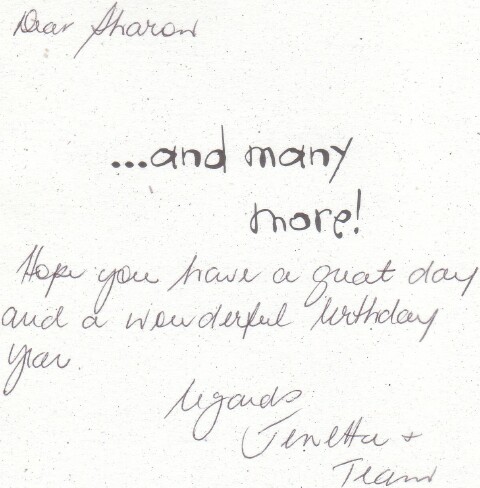 Dear Sharon
...and many
more!
Hope you have a great day
and a wonderful birthday
year.
Regards
Jenetta +
Team